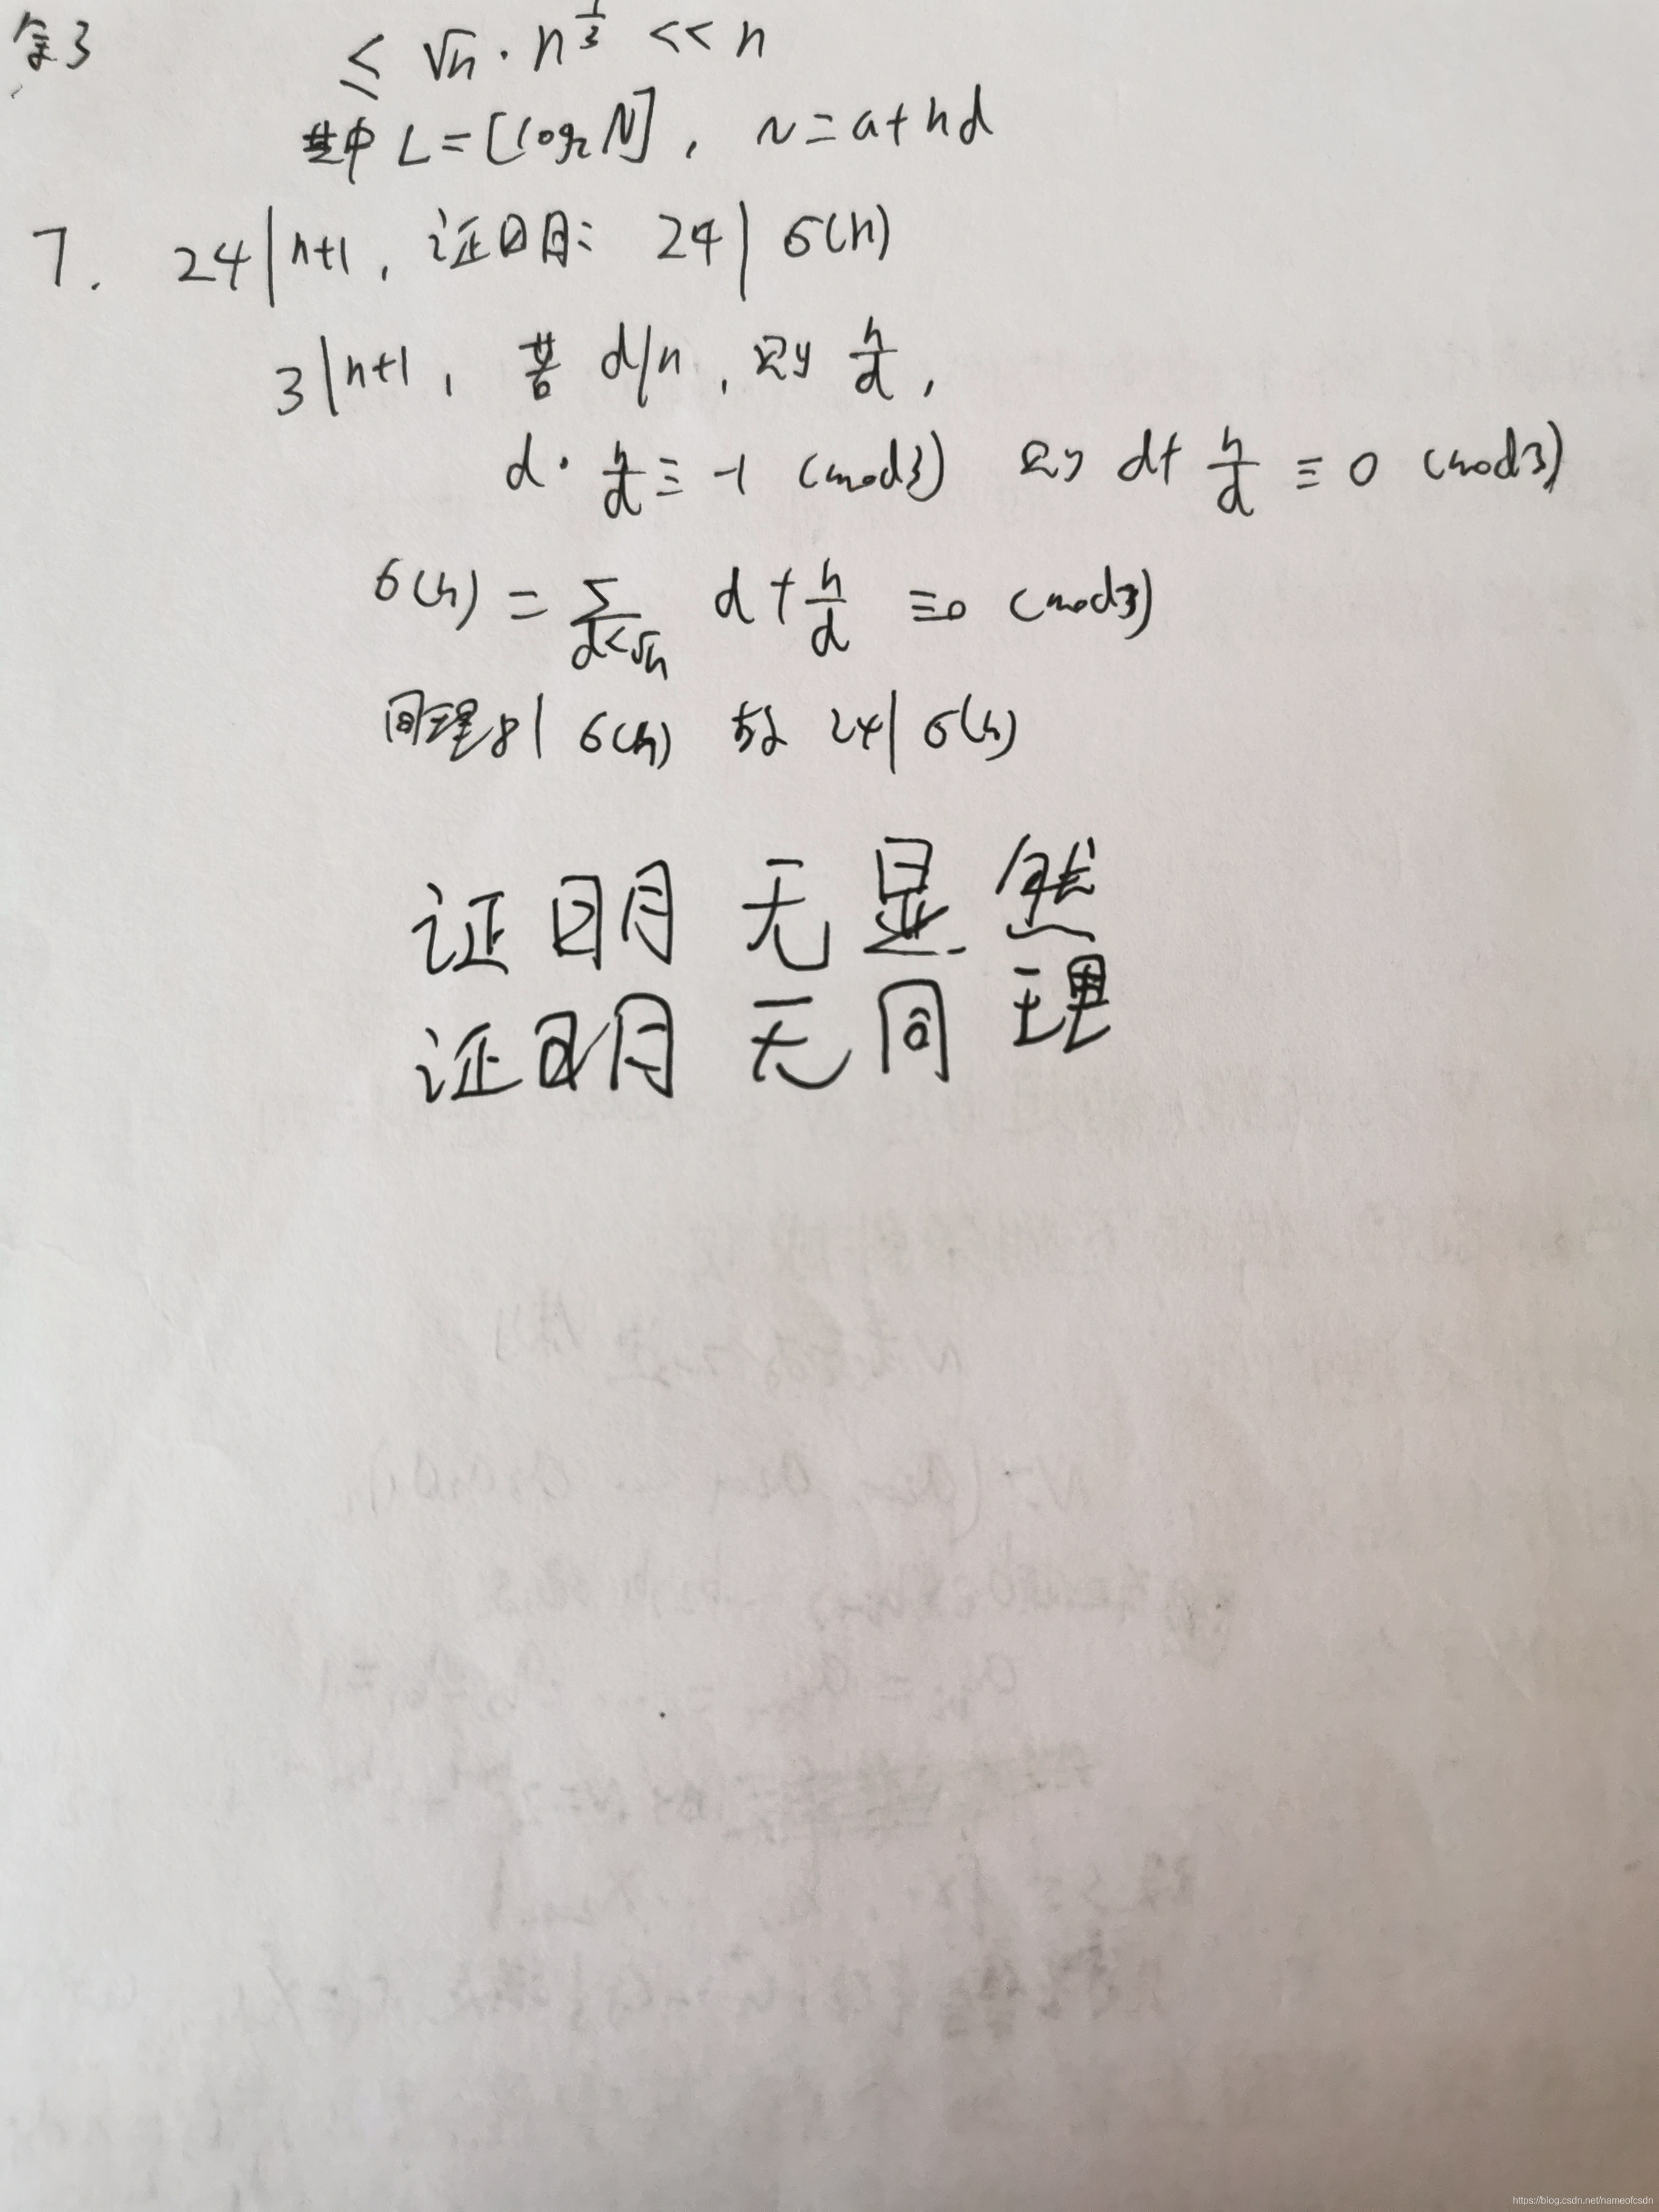 ≤ √n · n^{1/3} << n
其中 L = [log₂ N], N = a + nd
7. 24 | n+1, 证明: 24 | σ(n)
3 | n+1, 若 d|n, 则 n/d,
d · n/d ≡ -1 (mod 3) 则 d + n/d ≡ 0 (mod 3)
σ(n) = ∑_{d<√n} d + n/d ≡ 0 (mod 3)
同理 8 | σ(n) 故 24 | σ(n)
证明无显然
证明无同理
https://blog.csdn.net/nameofcsdn